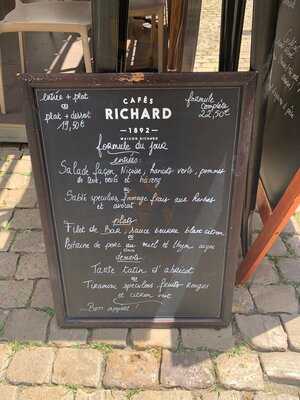 CAFÉS
RICHARD
1892
MAISON RICHARD
entrée + plat
ou
plat + dessert
19,50€
formule
complète
22,50€
formule du jour
entrées:
Salade façon Niçoise, haricots verts, pommes
de terre, oeufs et hareng
ou
Sablé speculoos, fromage frais aux herbes
et avocat
plats
Filet de Bar, sauce beurre blanc citron
ou
Poitrine de porc au miel et thym
desserts
Tarte tatin d'abricot
ou
Tiramisu speculoos, fruits rouges
et citron vert
Bon appétit!